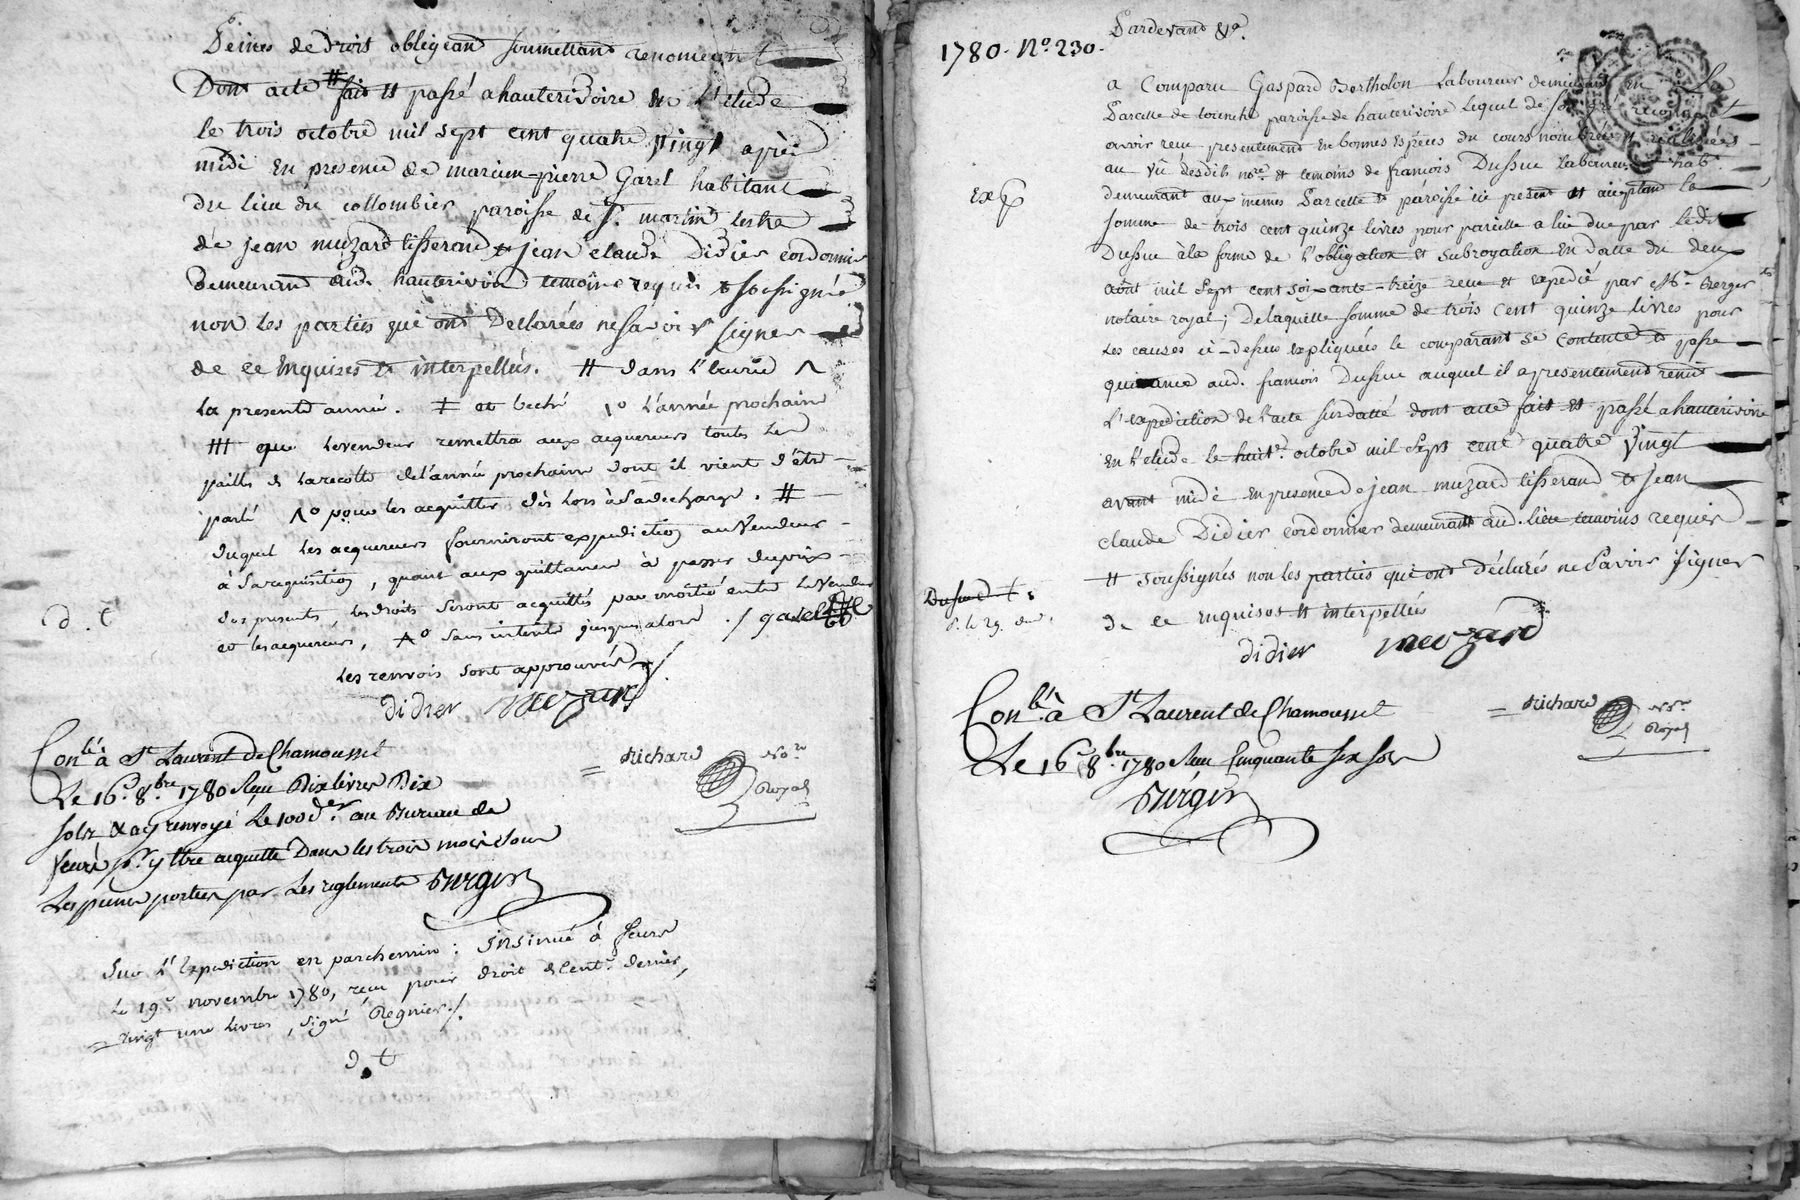 Peines de droit obligeant soumettant renonceant
Dont acte # fait et passé a hauterivoire en l'etude
le trois octobre mil sept cent quatre vingt après
midi en presence de pierre Garel habitant
du lieu du collombier paroisse de St. martin lestra
de jean muzard tisserand et jean claude Didier cordonnier
demeurand aud. hauterivoire temoins requis et soussignés
non les parties qui ont Declarées ne savoir signer
de ce enquises et interpellés. # dans l'
la presente année. ‡ et beché 1º l'année prochaine
que levendeur remettra aux acquereurs toutes les
pailles de la recolte de l'année prochaine dont il vient d'être
parlé pour les acquitter dès lors à sa decharge. #
duquel les acquereurs fourniront expedition au vendeur
à sa requisition, quant aux quittances à passer du prix
des presentes, les droits seront acquittés par moitié entre le vendeur
et les acquereurs, sans interêts jusques alors ./ garel
Les renvois sont approuvés ./.
d. t
didier meozard
Conlé. à St Laurent de Chamousset
Le 16e. 8bre. 1780 Reçu Dix livres Dix
sols & ay renvoyé Le 100e. der au Bureau de
feurs pr. y etre acquitté Dans les trois mois sous
Les peines portées par Les reglements Burgin
= Richard Nore Royal
Sur l'Expedition en parchemin : Insinué à feurs
le 19e novembre 1780, reçu pour droit de cente. denier,
= vingt une livres, signé Regnier ./.
d. t
Pardevant &a.
1780. Nº. 230.
a Comparu Gaspard Bertholon Laboureur demeurant en La
Parcelle de paroisse de hauterivoire lequel de son gré reconnoit
avoir reçu presentement en bonnes espèces du cours nombrées et realisées
au vû desdits nore. et temoins de françois Dussuc Laboureur habt.
demeurant aux mêmes Parcelle et paroisse ici present et acceptant la
exp
somme de trois cent quinze livres pour pareille a lui due par ledit
Dussuc à la forme de l'obligation et subrogation en datte du deux
août mil sept cent soixante-treize reçue et expedié par Me. berger
notaire royal; Delaquelle somme de trois cent quinze livres pour
les causes ci-dessus expliquées le comparant se contente et passe
quittance aud. françois Dussuc auquel il a presentement remis
l'expedition de l'acte surdatté dont acte fait et passé a hauterivoire
en l'etude le huite. octobre mil sept cent quatre vingt
avant midi en presence de jean muzard tisserand et jean
claude Didier cordonnier demeurants aud. lieu temoins requis
et soussignés non les parties qui ont déclarés ne savoir signer
Dussuc
de ce enquises et interpellés
didier meozard
Conlé. à St Laurent de Chamousset
Le 16e. 8bre. 1780 Reçu Cinquante six sols
Burgin
= Richard Nore. Royal